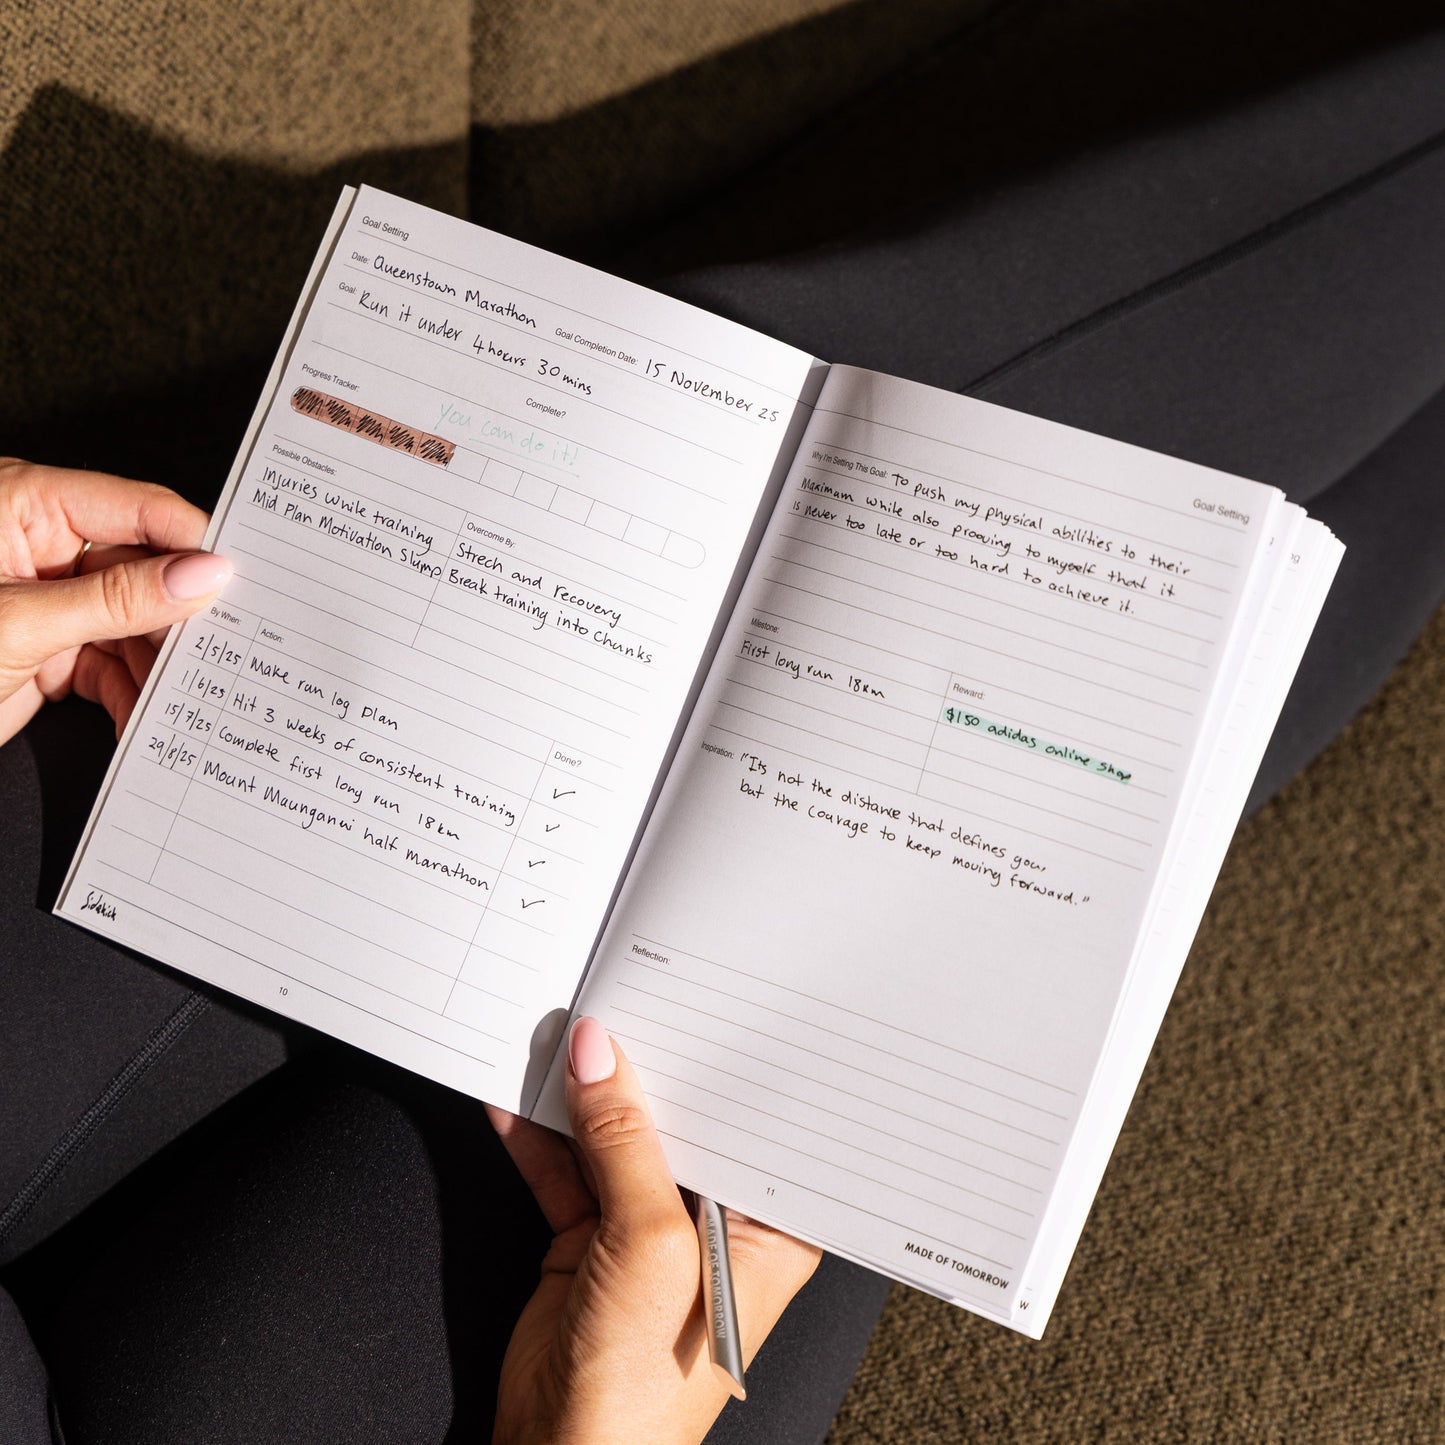 Goal Setting
Date: Queenstown Marathon Goal Completion Date: 15 November 25
Goal: Run it under 4 hours 30 mins
Progress Tracker: Complete?
you can do it!
Possible Obstacles: Overcome By:
Injuries while training Strech and recovery
Mid Plan Motivation Slump Break training into Chunks
By When: Action: Done?
2/5/25 Make run log plan ✓
1/6/25 Hit 3 weeks of consistent training ✓
15/7/25 Complete first long run 18km ✓
29/8/25 Mount Maunganui half marathon ✓
Sidekick
10
Goal Setting
Why I'm Setting This Goal: to push my physical abilities to their
Maximum while also prooving to myself that it
is never too late or too hard to achieve it.
Milestone: Reward:
First long run 18km $150 adidas online shop
Inspiration: "Its not the distance that defines you,
but the courage to keep moving forward."
Reflection:
11
MADE OF TOMORROW
W
ng
MADE OF TOMORROW